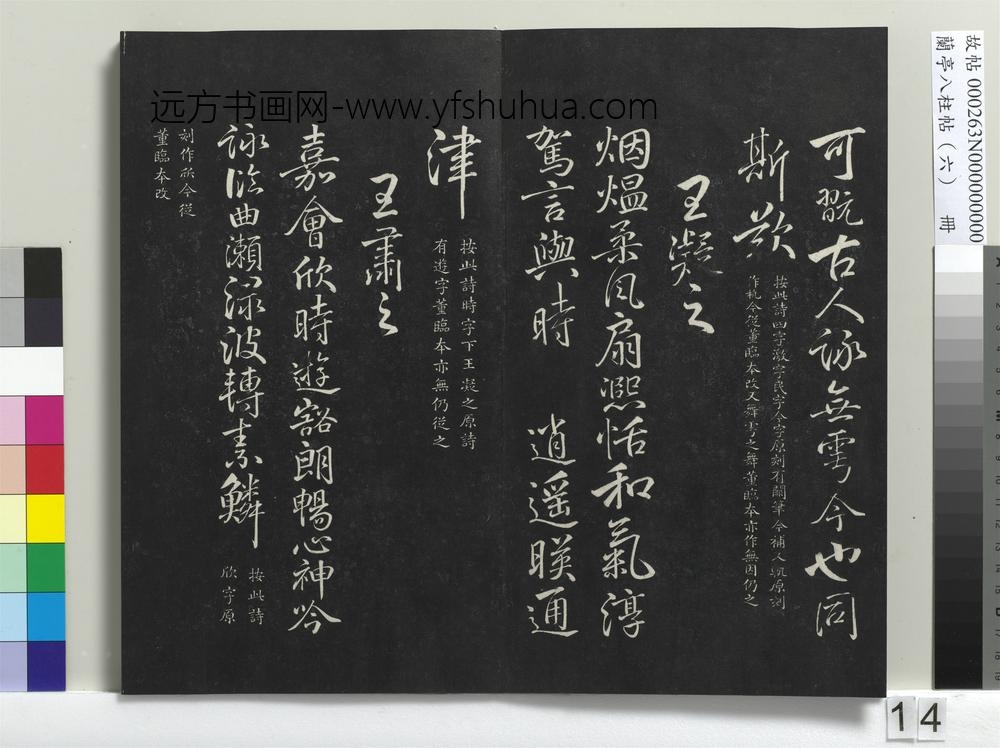 可翫古人詠無雩今也同
斯歎
按此詩四字激字民字今字原刻有闕筆今補人執原刻
作執今從董臨本改又舞雩之舞董臨本亦作無因仍之
王凝之
烟煴柔風扇熙恬和氣淳
駕言與時 逍遥暎通
津
按此詩時字下王凝之原詩
有遊字董臨本亦無仍從之
王肅之
嘉會欣時遊豁朗暢心神吟
詠臨曲瀬渌波轉素鱗
按此詩
欣字原
刻作欣今從
董臨本改
远方书画网-www.yfshuhua.com
故帖 000263N000000000
蘭亭八柱帖(六) 冊
14